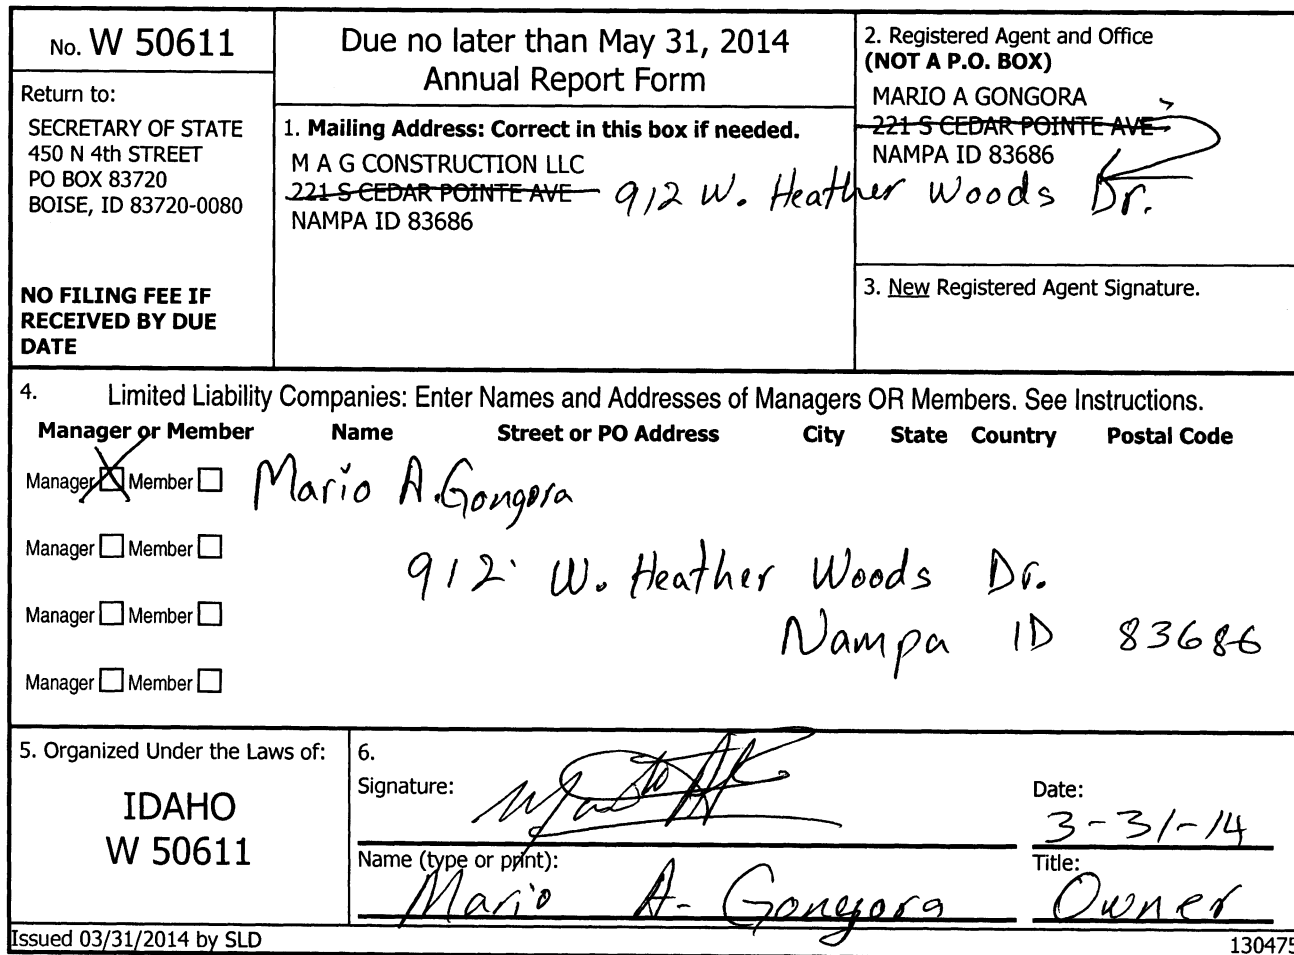 No. W 50611
Return to:
SECRETARY OF STATE
450 N 4th STREET
PO BOX 83720
BOISE, ID 83720-0080
NO FILING FEE IF
RECEIVED BY DUE
DATE
Due no later than May 31, 2014
Annual Report Form
1. Mailing Address: Correct in this box if needed.
M A G CONSTRUCTION LLC
221 S CEDAR POINTE AVE 912 W. Heather Woods Dr.
NAMPA ID 83686
2. Registered Agent and Office
(NOT A P.O. BOX)
MARIO A GONGORA
221 S CEDAR POINTE AVE
NAMPA ID 83686
3. New Registered Agent Signature.
4. Limited Liability Companies: Enter Names and Addresses of Managers OR Members. See Instructions.
Manager or Member Name Street or PO Address City State Country Postal Code
Manager Member Mario A. Gongora
Manager Member 912 W. Heather Woods Dr.
Manager Member Nampa ID 83686
Manager Member
5. Organized Under the Laws of:
IDAHO
W 50611
6.
Signature:
Date:
3-31-14
Name (type or print):
Mario A- Gongora
Title:
Owner
Issued 03/31/2014 by SLD
130475